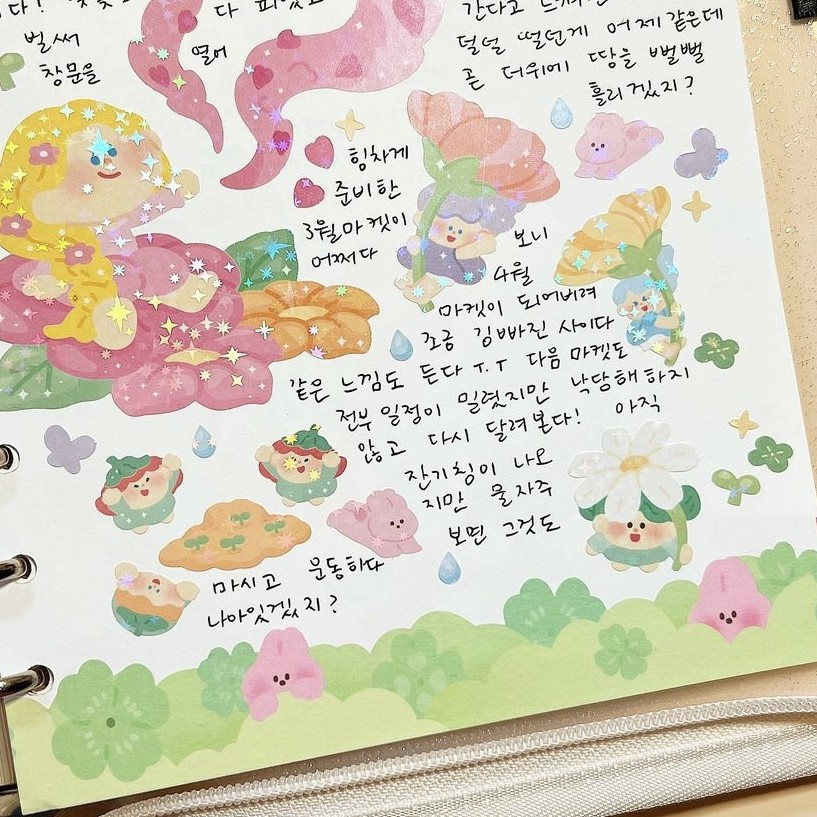 벌써
창문을
열어
간다고
덜덜 떨던게 어제같은데
곧 더위에 땀을 뻘뻘
흘리겠지?
힘차게
준비한
3월마켓이
어쩌다
보니
4월
마켓이 되어버려
조금 김빠진 사이다
같은 느낌도 든다 T.T 다음마켓도
전부 일정이 밀렸지만 낙담해하지
않고 다시 달려본다! 아직
잔기침이 나오
지만 물자주
마시고 운동하다
보면 그것도
나아있겠지?